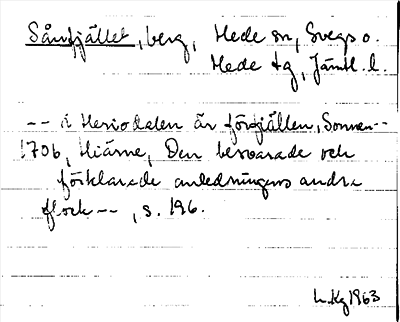 Sånfjället, berg, Hede sn, Svegs o.
Hede tg, Jämtl. l.
-- i Heriodalen är förgiällen, Sonnen--
1706, Hiärne, Den beswarade och
förklarade anledningens andra
flock --, s. 196.
L.Kg 1963